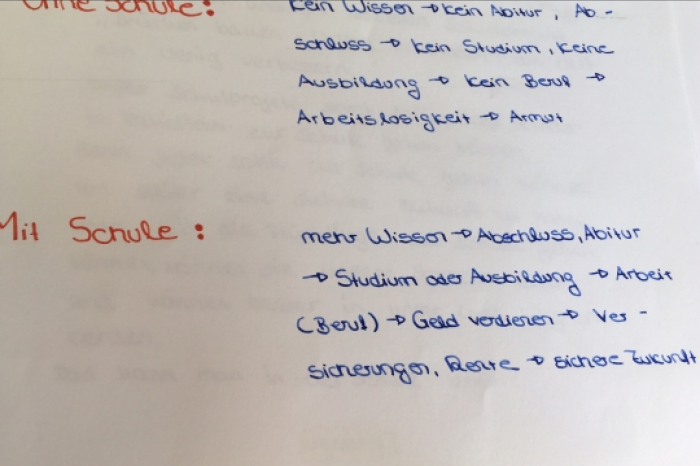 Ohne Schule: kein Wissen → kein Abitur, Ab-
schluss → kein Studium, keine
Ausbildung → kein Beruf →
Arbeitslosigkeit → Armut
Mit Schule: mehr Wissen → Abschluss, Abitur
→ Studium oder Ausbildung → Arbeit
(Beruf) → Geld verdienen → Ver-
sicherungen, Rente → sichere Zukunft